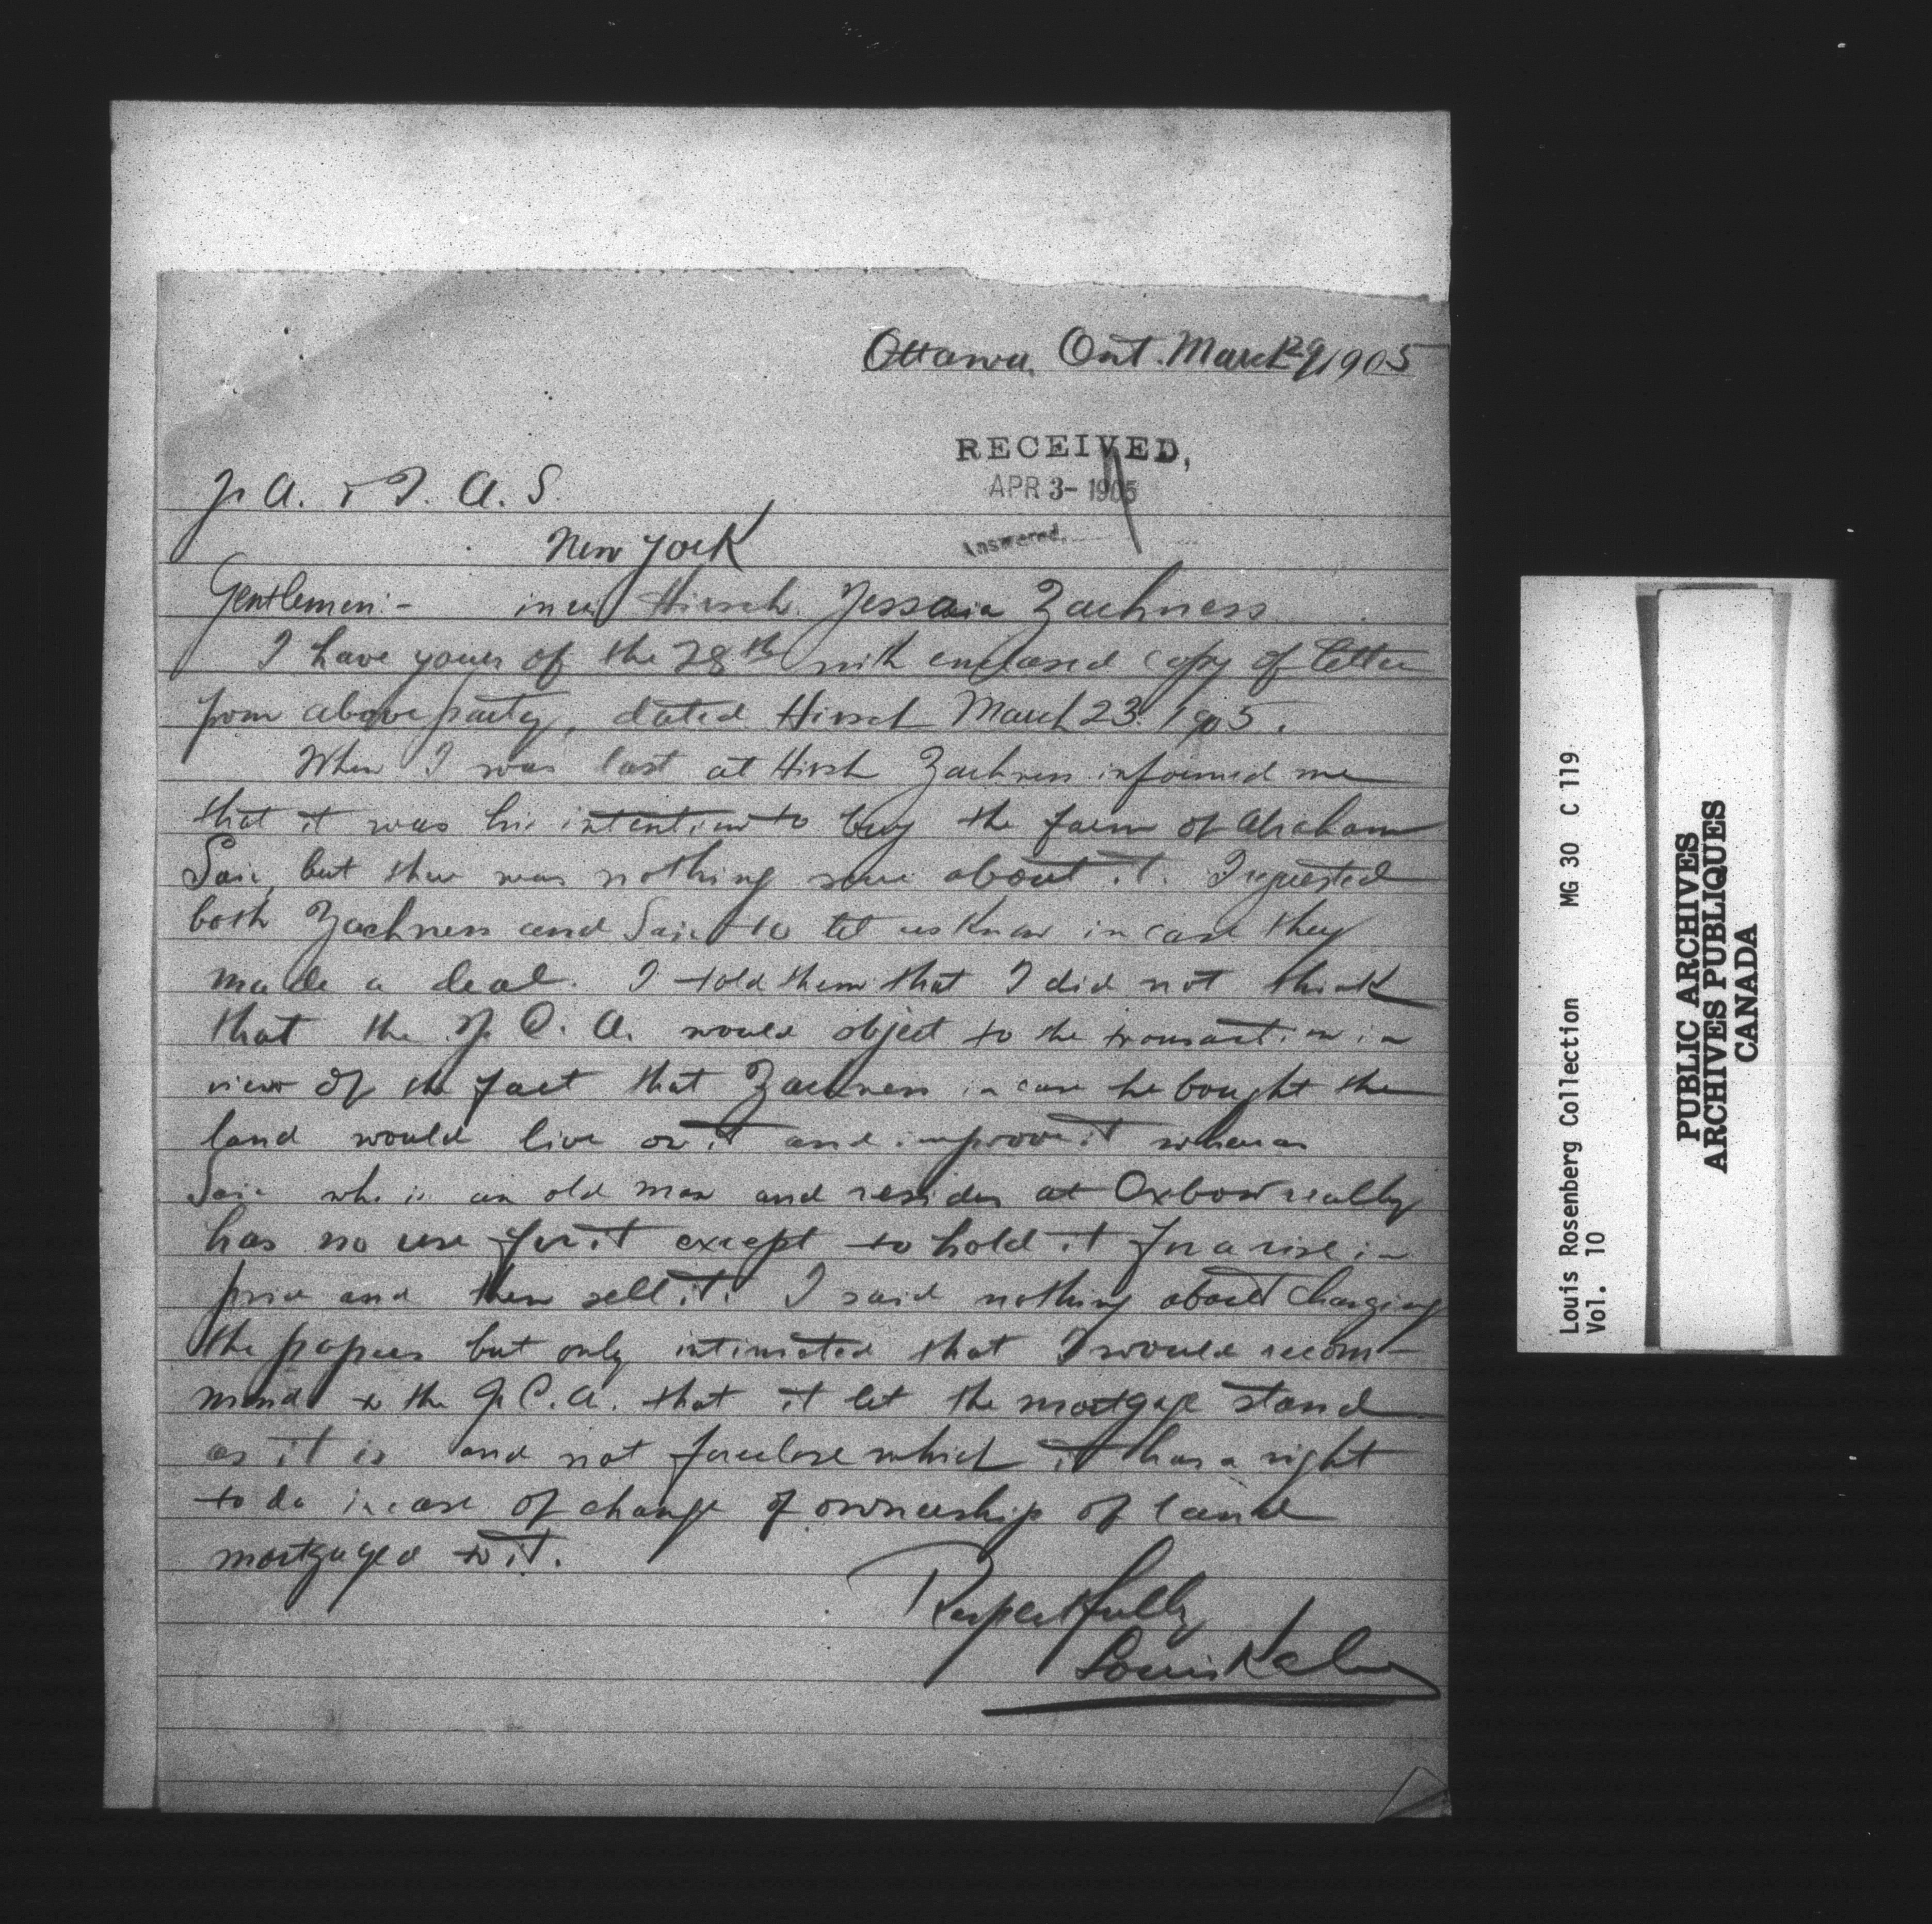 Ottawa, Ont. March 29/1905
RECEIVED,
APR 3- 1905
Answered,
J. A. & I. A. S.
New York
Gentlemen:- in re Hirsch. Jessaia Zachness
I have yours of the 28th with enclosed copy of letter
from above party, dated Hirsch March 23. 1905.
When I was last at Hirsh Zachness informed me
that it was his intention to buy the farm of Abraham
but there was nothing sure about it. I requested
both Zachness and to let us know in case they
made a deal. I told them that I did not think
that the J. C. A. would object to the transaction in
view of the fact that Zachness in case he bought the
land would live on it and improve it whereas
who is an old man and resides at Oxbow really
has no use for it except to hold it for a rise in
price and then sell it. I said nothing about changing
the papers but only intimated that I would recom-
mend to the J. C. A. that it let the mortgage stand
as it is and not foreclose which it has a right
to do in case of change of ownership of land
mortgaged to it.
Respectfully
Louis Kahn
Louis Rosenberg Collection MG 30 C 119
Vol. 10
PUBLIC ARCHIVES
ARCHIVES PUBLIQUES
CANADA